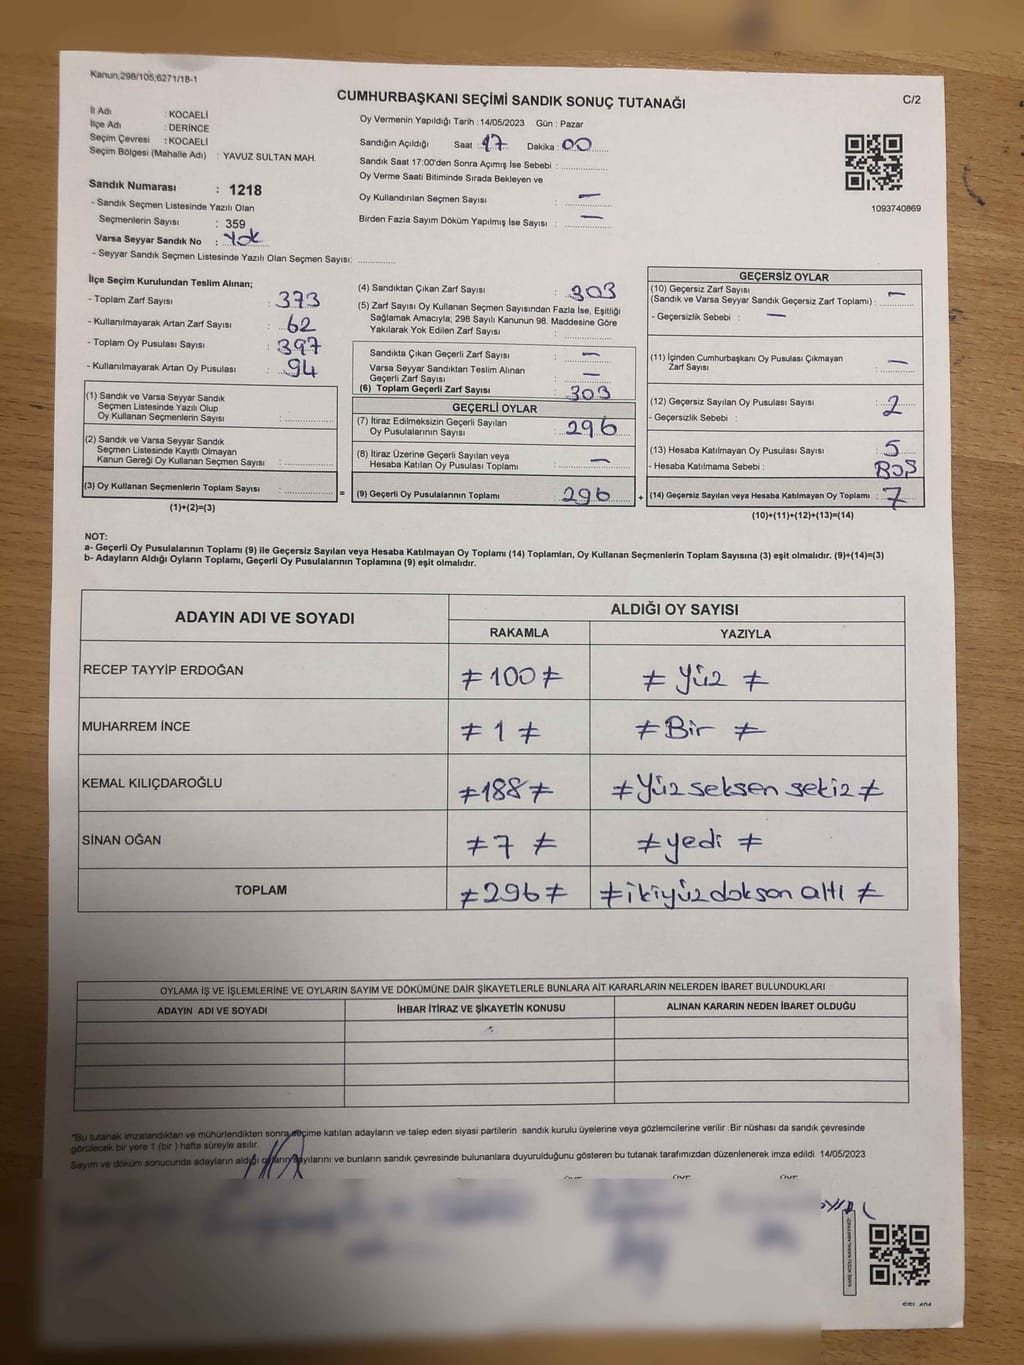 Kanun,298/105,6271/18-1
CUMHURBAŞKANI SEÇİMİ SANDIK SONUÇ TUTANAĞI
C/2
İl Adı : KOCAELİ
İlçe Adı : DERİNCE
Seçim Çevresi : KOCAELİ
Seçim Bölgesi (Mahalle Adı) : YAVUZ SULTAN MAH.
Sandık Numarası : 1218
- Sandık Seçmen Listesinde Yazılı Olan
Seçmenlerin Sayısı : 359
Varsa Seyyar Sandık No : Yok
- Seyyar Sandık Seçmen Listesinde Yazılı Olan Seçmen Sayısı:
Oy Vermenin Yapıldığı Tarih : 14/05/2023 Gün : Pazar
Sandığın Açıldığı Saat : 17 Dakika : 00
Sandık Saat 17:00'den Sonra Açımış İse Sebebi :
Oy Verme Saati Bitiminde Sırada Bekleyen ve
Oy Kullandırılan Seçmen Sayısı : —
Birden Fazla Sayım Döküm Yapılmış İse Sayısı : —
1093740869
İlçe Seçim Kurulundan Teslim Alınan;
- Toplam Zarf Sayısı : 373
- Kullanılmayarak Artan Zarf Sayısı : 62
- Toplam Oy Pusulası Sayısı : 397
- Kullanılmayarak Artan Oy Pusulası : 94
(1) Sandık ve Varsa Seyyar Sandık
Seçmen Listesinde Yazılı Olup
Oy Kullanan Seçmenlerin Sayısı :
(2) Sandık ve Varsa Seyyar Sandık
Seçmen Listesinde Kayıtlı Olmayan
Kanun Gereği Oy Kullanan Seçmen Sayısı :
(3) Oy Kullanan Seçmenlerin Toplam Sayısı :
(1)+(2)=(3)
(4) Sandıktan Çıkan Zarf Sayısı : 303
(5) Zarf Sayısı Oy Kullanan Seçmen Sayısından Fazla İse, Eşitliği
Sağlamak Amacıyla; 298 Sayılı Kanunun 98. Maddesine Göre
Yakılarak Yok Edilen Zarf Sayısı :
Sandıkta Çıkan Geçerli Zarf Sayısı : —
Varsa Seyyar Sandıktan Teslim Alınan
Geçerli Zarf Sayısı : —
(6) Toplam Geçerli Zarf Sayısı : 303
GEÇERLİ OYLAR
(7) İtiraz Edilmeksizin Geçerli Sayılan
Oy Pusulalarının Sayısı : 296
(8) İtiraz Üzerine Geçerli Sayılan veya
Hesaba Katılan Oy Pusulası Toplamı : —
= (9) Geçerli Oy Pusulalarının Toplamı : 296
GEÇERSİZ OYLAR
(10) Geçersiz Zarf Sayısı
(Sandık ve Varsa Seyyar Sandık Geçersiz Zarf Toplamı) : —
- Geçersizlik Sebebi : —
(11) İçinden Cumhurbaşkanı Oy Pusulası Çıkmayan
Zarf Sayısı : —
(12) Geçersiz Sayılan Oy Pusulası Sayısı : 2
- Geçersizlik Sebebi :
(13) Hesaba Katılmayan Oy Pusulası Sayısı : 5
- Hesaba Katılmama Sebebi : BOŞ
+ (14) Geçersiz Sayılan veya Hesaba Katılmayan Oy Toplamı : 7
(10)+(11)+(12)+(13)=(14)
NOT:
a- Geçerli Oy Pusulalarının Toplamı (9) ile Geçersiz Sayılan veya Hesaba Katılmayan Oy Toplamı (14) Toplamları, Oy Kullanan Seçmenlerin Toplam Sayısına (3) eşit olmalıdır. (9)+(14)=(3)
b- Adayların Aldığı Oyların Toplamı, Geçerli Oy Pusulalarının Toplamına (9) eşit olmalıdır.
ADAYIN ADI VE SOYADI
ALDIĞI OY SAYISI
RAKAMLA YAZIYLA
RECEP TAYYİP ERDOĞAN ≠ 100 ≠ ≠ Yüz ≠
MUHARREM İNCE ≠ 1 ≠ ≠ Bir ≠
KEMAL KILIÇDAROĞLU ≠ 188 ≠ ≠ Yüz seksen sekiz ≠
SİNAN OĞAN ≠ 7 ≠ ≠ yedi ≠
TOPLAM ≠ 296 ≠ ≠ ikiyüz doksan altı ≠
OYLAMA İŞ VE İŞLEMLERİNE VE OYLARIN SAYIM VE DÖKÜMÜNE DAİR ŞİKAYETLERLE BUNLARA AİT KARARLARIN NELERDEN İBARET BULUNDUKLARI
ADAYIN ADI VE SOYADI İHBAR İTİRAZ VE ŞİKAYETİN KONUSU ALINAN KARARIN NEDEN İBARET OLDUĞU
*Bu tutanak imzalandıktan ve mühürlendikten sonra seçime katılan adayların ve talep eden siyasi partilerin sandık kurulu üyelerine veya gözlemcilerine verilir .Bir nüshası da sandık çevresinde
görülecek bir yere 1 (bir ) hafta süreyle asılır.
Sayım ve döküm sonucunda adayların aldığı oyların sayılarını ve bunların sandık çevresinde bulunanlara duyurulduğunu gösteren bu tutanak tarafımızdan düzenlenerek imza edildi. 14/05/2023